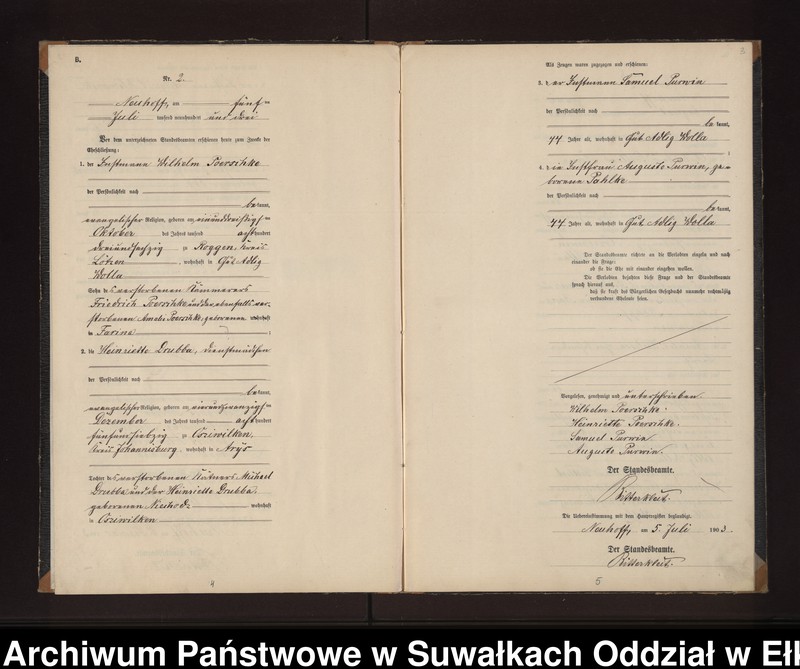 B.
Nr. 2.
Neuhoff, am fünf ten
Juli tausend neunhundert und drei
Vor dem unterzeichneten Standesbeamten erschienen heute zum Zwecke der
Eheschließung:
1. der Instmann Wilhelm Poerschke
der Persönlichkeit nach
be kannt,
evangelischer Religion, geboren am einunddreißigsten
Oktober des Jahres tausend acht hundert
dreiundsechzig zu Roggen, Kreis
Lötzen, wohnhaft in Gut Adlig
Wolla
Sohn des verstorbenen Kämmerers
Friedrich Poerschke und der ebenfalls ver-
storbenen Amalie Poerschke, geborenen wohnhaft
in Farine ;
2. die Heinriette Drubba, Dienstmädchen
der Persönlichkeit nach
be kannt,
evangelischer Religion, geboren am einundzwanzigsten
Dezember des Jahres tausend acht hundert
fünfundsiebzig zu Osziwilken,
Kreis Johannisburg, wohnhaft in Arys
Tochter des verstorbenen Kätners Michael
Drubba und der Heinriette Drubba,
geborenen wohnhaft
in Osziwilken
4
Als Zeugen waren zugezogen und erschienen:
3. der Instmann Samuel Purwin
der Persönlichkeit nach
be kannt,
44 Jahre alt, wohnhaft in Gut Adlig Wolla
;
4. die Instfrau Auguste Purwin, ge-
borene Pahlke
der Persönlichkeit nach
be kannt,
44 Jahre alt, wohnhaft in Gut Adlig Wolla
Der Standesbeamte richtete an die Verlobten einzeln und nach
einander die Frage:
ob sie die Ehe mit einander eingehen wollen.
Die Verlobten bejahten diese Frage und der Standesbeamte
sprach hierauf aus,
daß sie kraft des Bürgerlichen Gesetzbuchs nunmehr rechtmäßig
verbundene Eheleute seien.
Vorgelesen, genehmigt und unterschrieben
Wilhelm Poerschke.
Heinriette Poerschke.
Samuel Purwin
Auguste Purwin.
Der Standesbeamte.
Die Uebereinstimmung mit dem Hauptregister beglaubigt.
Neuhoff, am 5. Juli 1903.
Der Standesbeamte.
5
Archiwum Państwowe w Suwałkach Oddział w Ełk